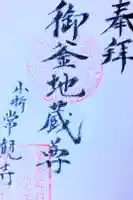 奉拝
御釜地蔵尊
小折
常観寺